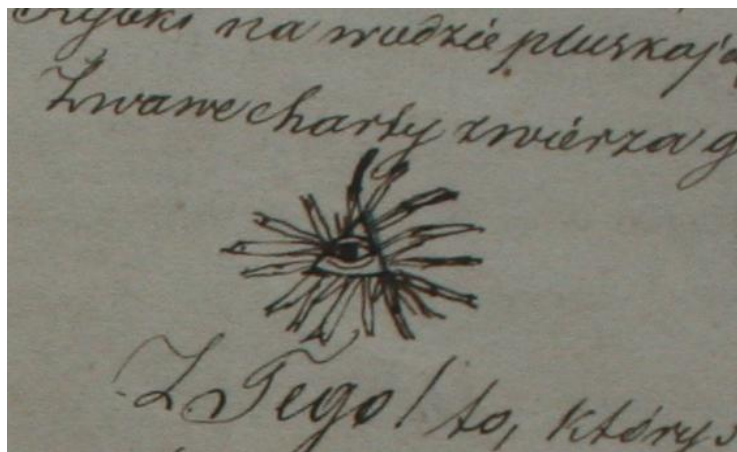 Rybki na wodzie pluskają
Żwawe charty zwierza g
Z Tego! to, któryś